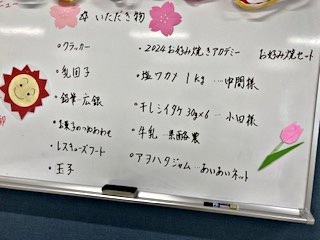 いただき物
・クラッカー
・乳団子
・鉛筆…広銀
・お菓子のつめあわせ
・レスキューフード
・玉子
・2024お好み焼きアカデミー お好み焼セット
・塩ワカメ 1kg …中間様
・干しシイタケ 30g×6 …小田様
・牛乳…県酪農
・アヲハタジャム…あいあいネット